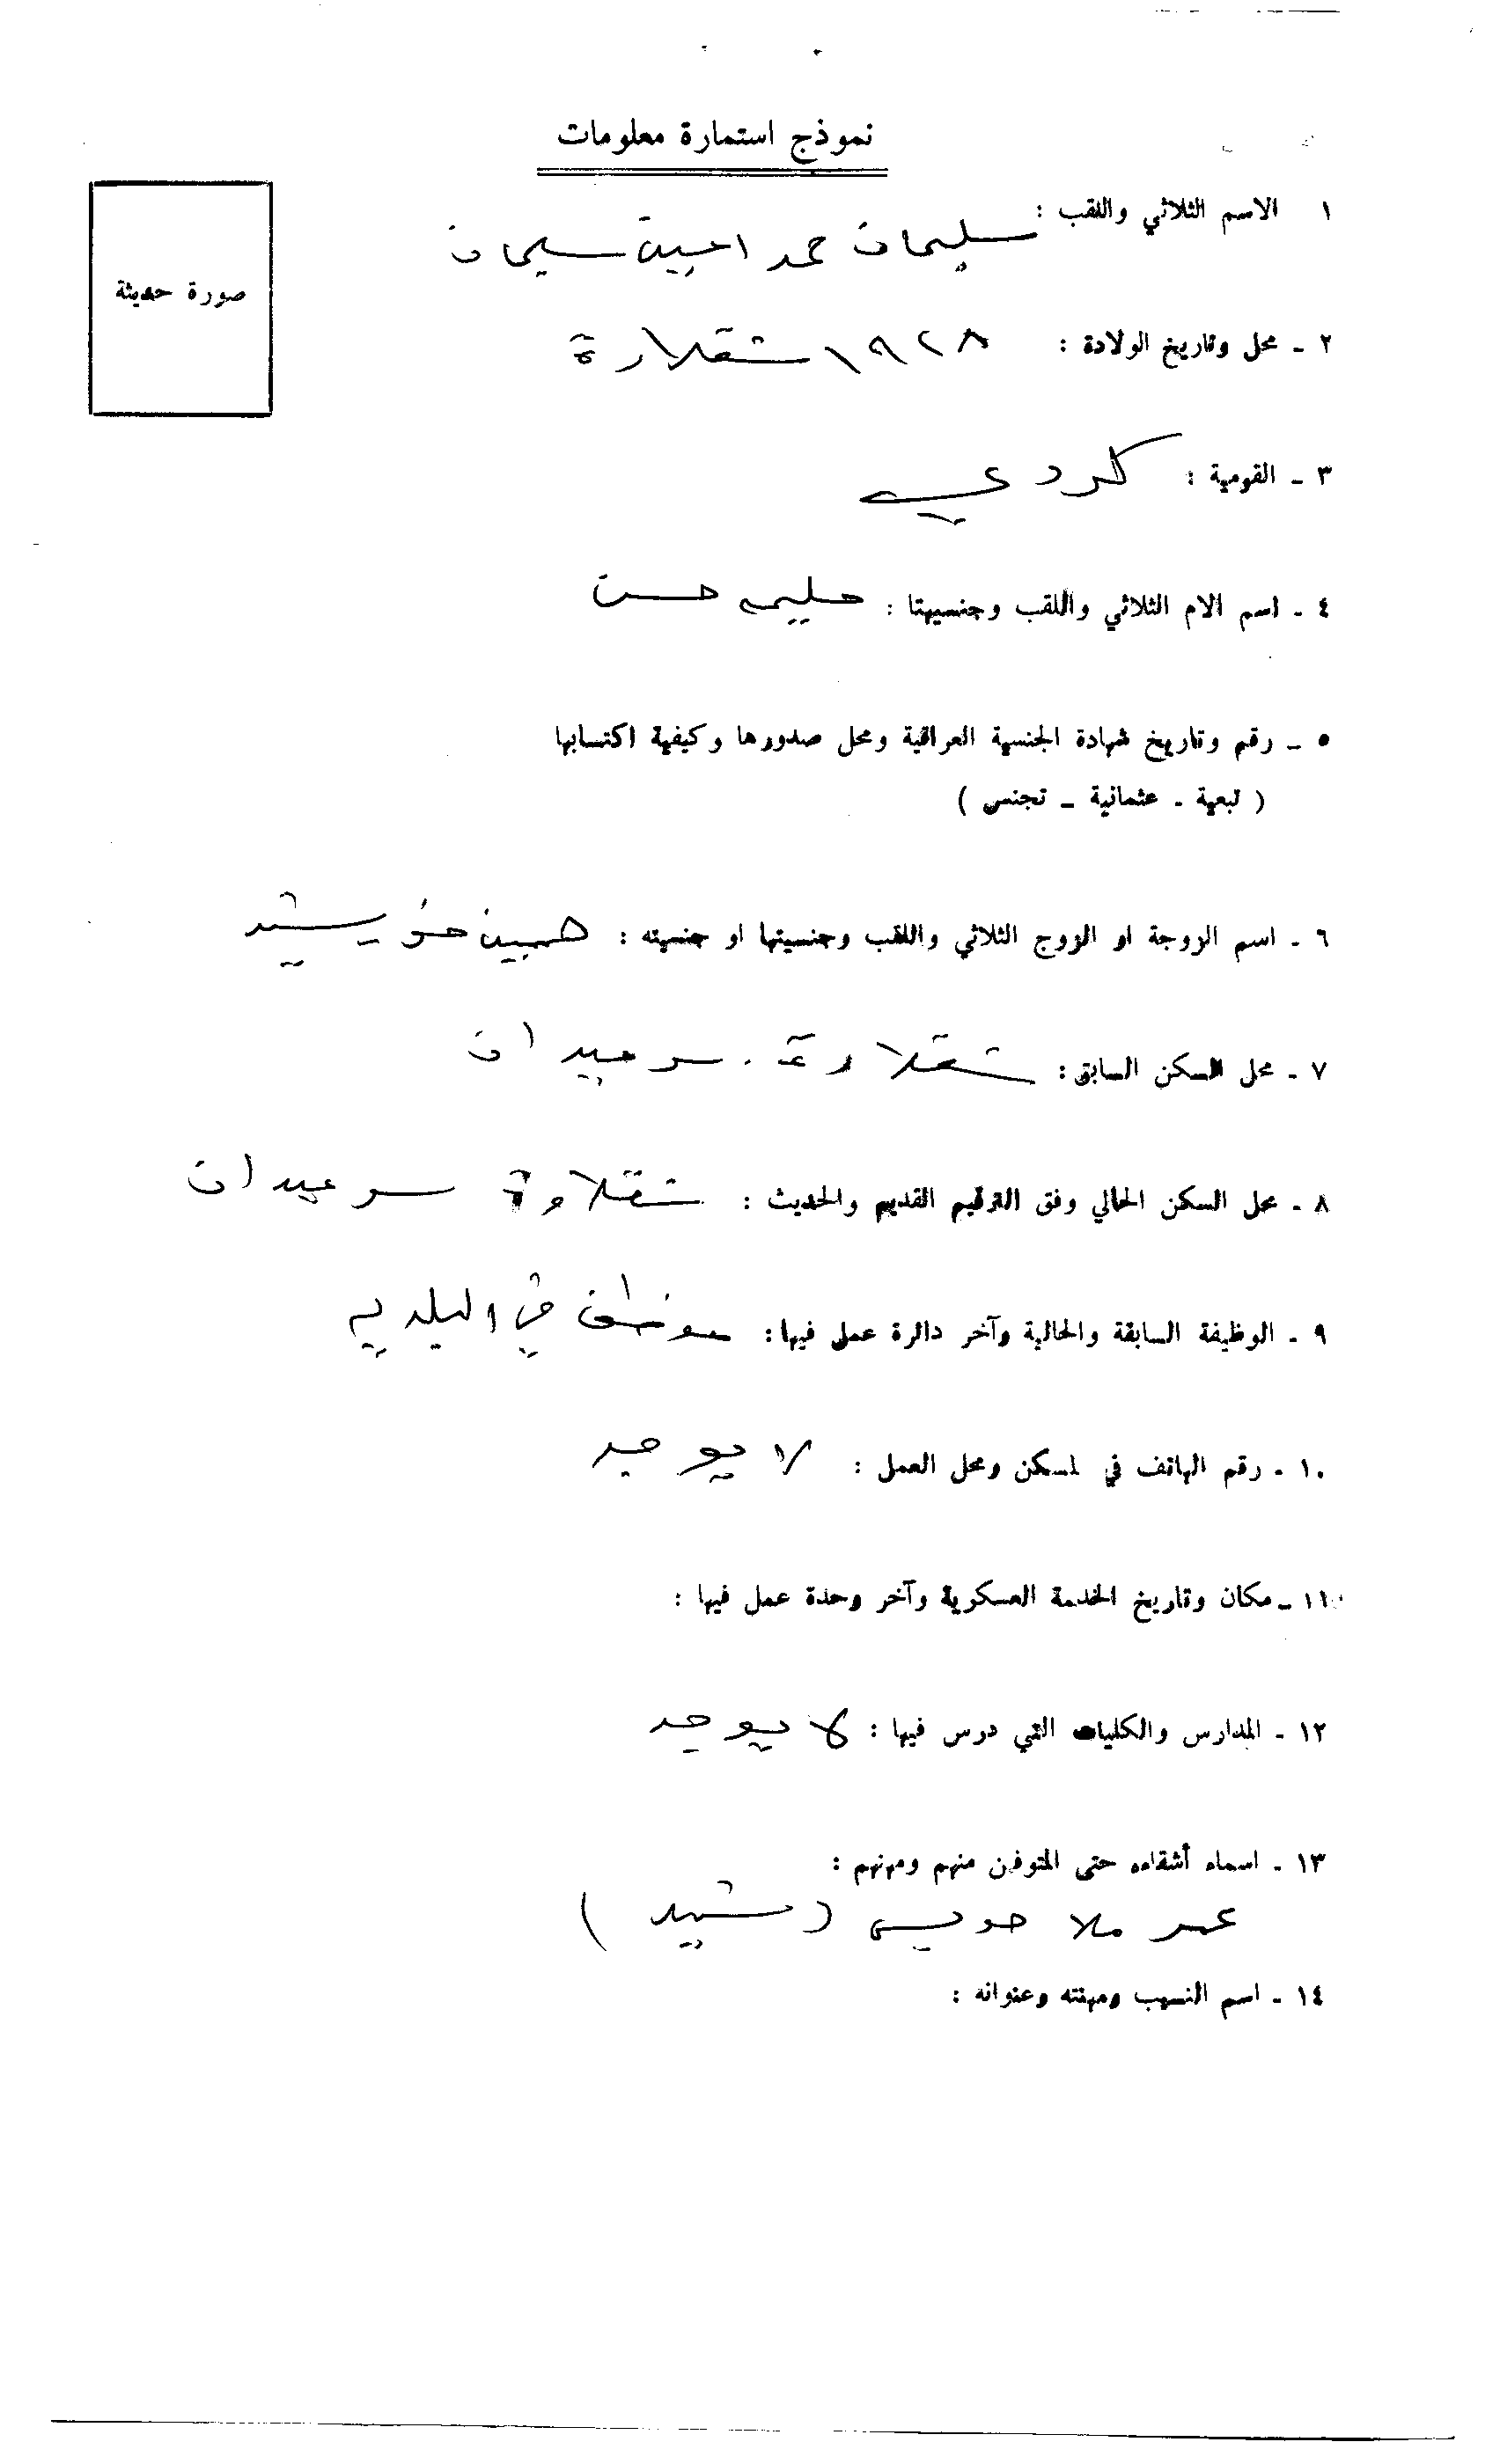 نموذج استمارة معلومات
صورة حديثة
١ الاسم الثلاثي واللقب : سليمان حمد امين سليمان
٢ - محل وتاريخ الولادة : ١٩٢٨ شقلاوة
٣ - القومية : كردي
٤ - اسم الام الثلاثي واللقب وجنسيهتا : حليمه حسن
٥ - رقم وتاريخ شهادة الجنسية العراقية ومحل صدورها وكيفية اكتسابها
( تبعية - عثمانية - تجنس )
٦ - اسم الزوجة او الزوج الثلاثي واللقب وجنسيتها او جنسيته : خورشيد
٧ - محل السكن السابق : شقلاوة . سرميدان
٨ - محل السكن الحالي وفق الترقيم القديم والحديث : شقلاوة سرميدان
٩ - الوظيفة السابقة والحالية وآخر دائرة عمل فيها : موظف في البلديه
١٠ - رقم الهاتف في لمسكن ومحل العمل : لا يوجد
١١ - مكان وتاريخ الخدمة العسكرية وآخر وحدة عمل فيها :
١٢ - المدارس والكليات التي درس فيها : لا يوجد
١٣ - اسماء أشقاءه حتى المتوفن منهم ومهنهم :
عمر ملا حويس ( شهيد )
١٤ - اسم النسيب ومهنته وعنوانه :